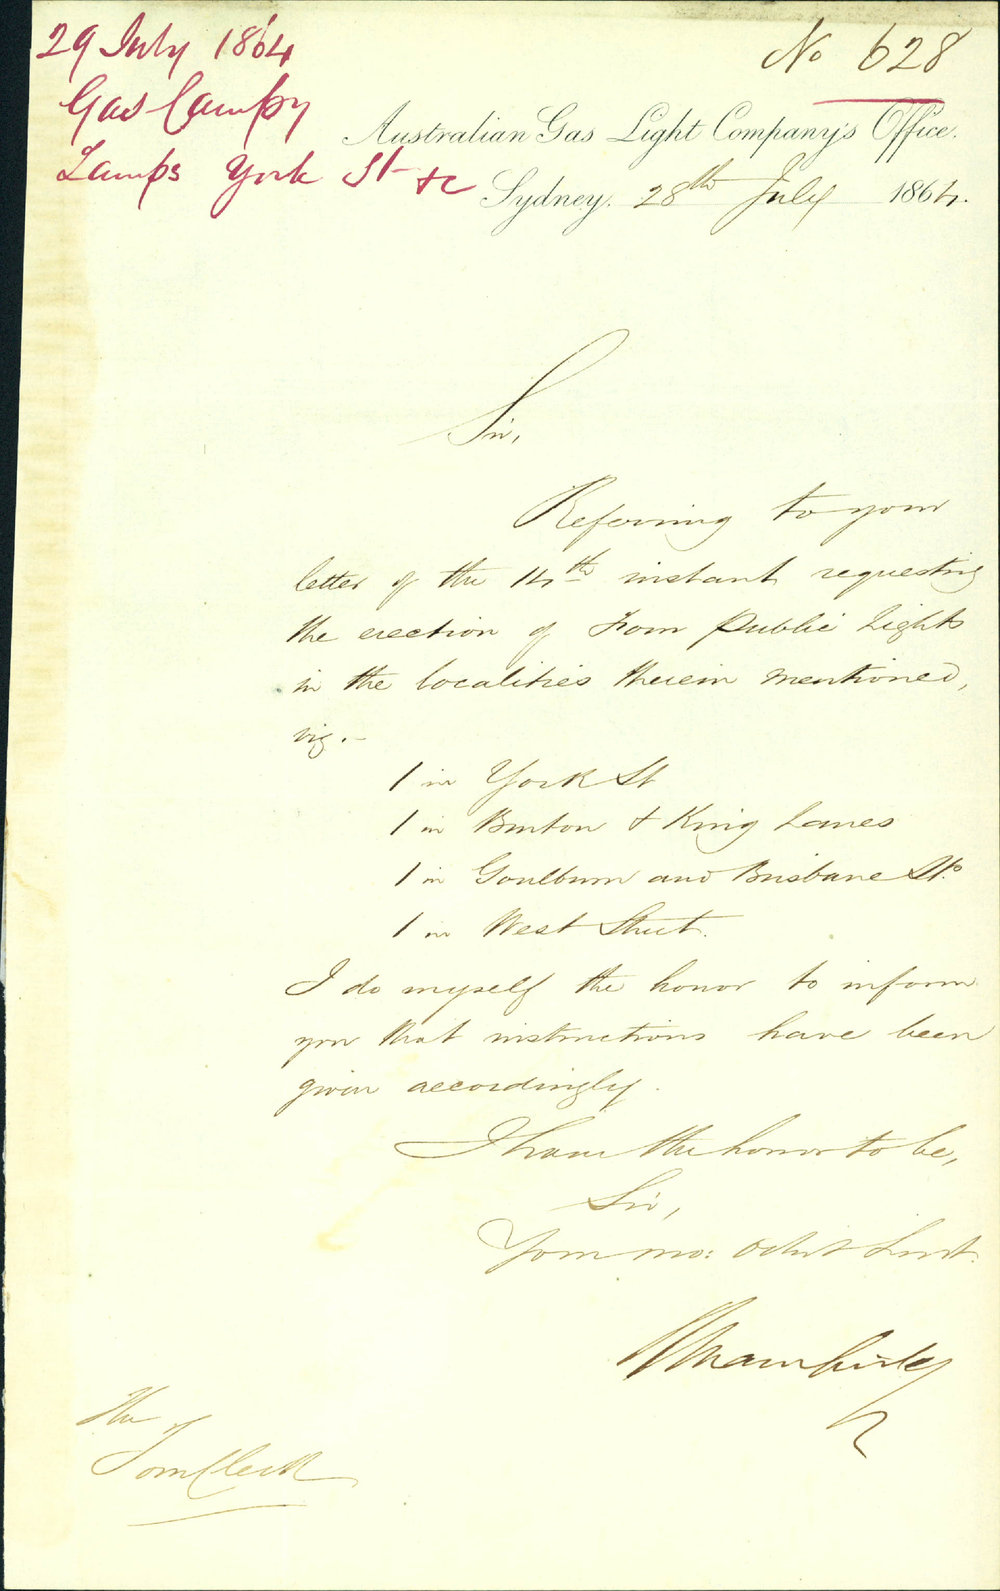 29 July 1864
Gas Compy
Lamps York St &c
No 628
Australian Gas Light Company's Office.
Sydney. 28th July 1864.
Sir,
Referring to your
letter of the 14th instant requesting
the erection of Four Public Lights
in the localities therein mentioned,
viz.-
1 in York St
1 in Burton & King Lanes
1 in Goulburn and Brisbane Sts.
1 in West Street.
I do myself the honor to inform
you that instructions have been
given accordingly.
I have the honor to be,
Sir,
Your mo: obdt Servt.
The
Town Clerk